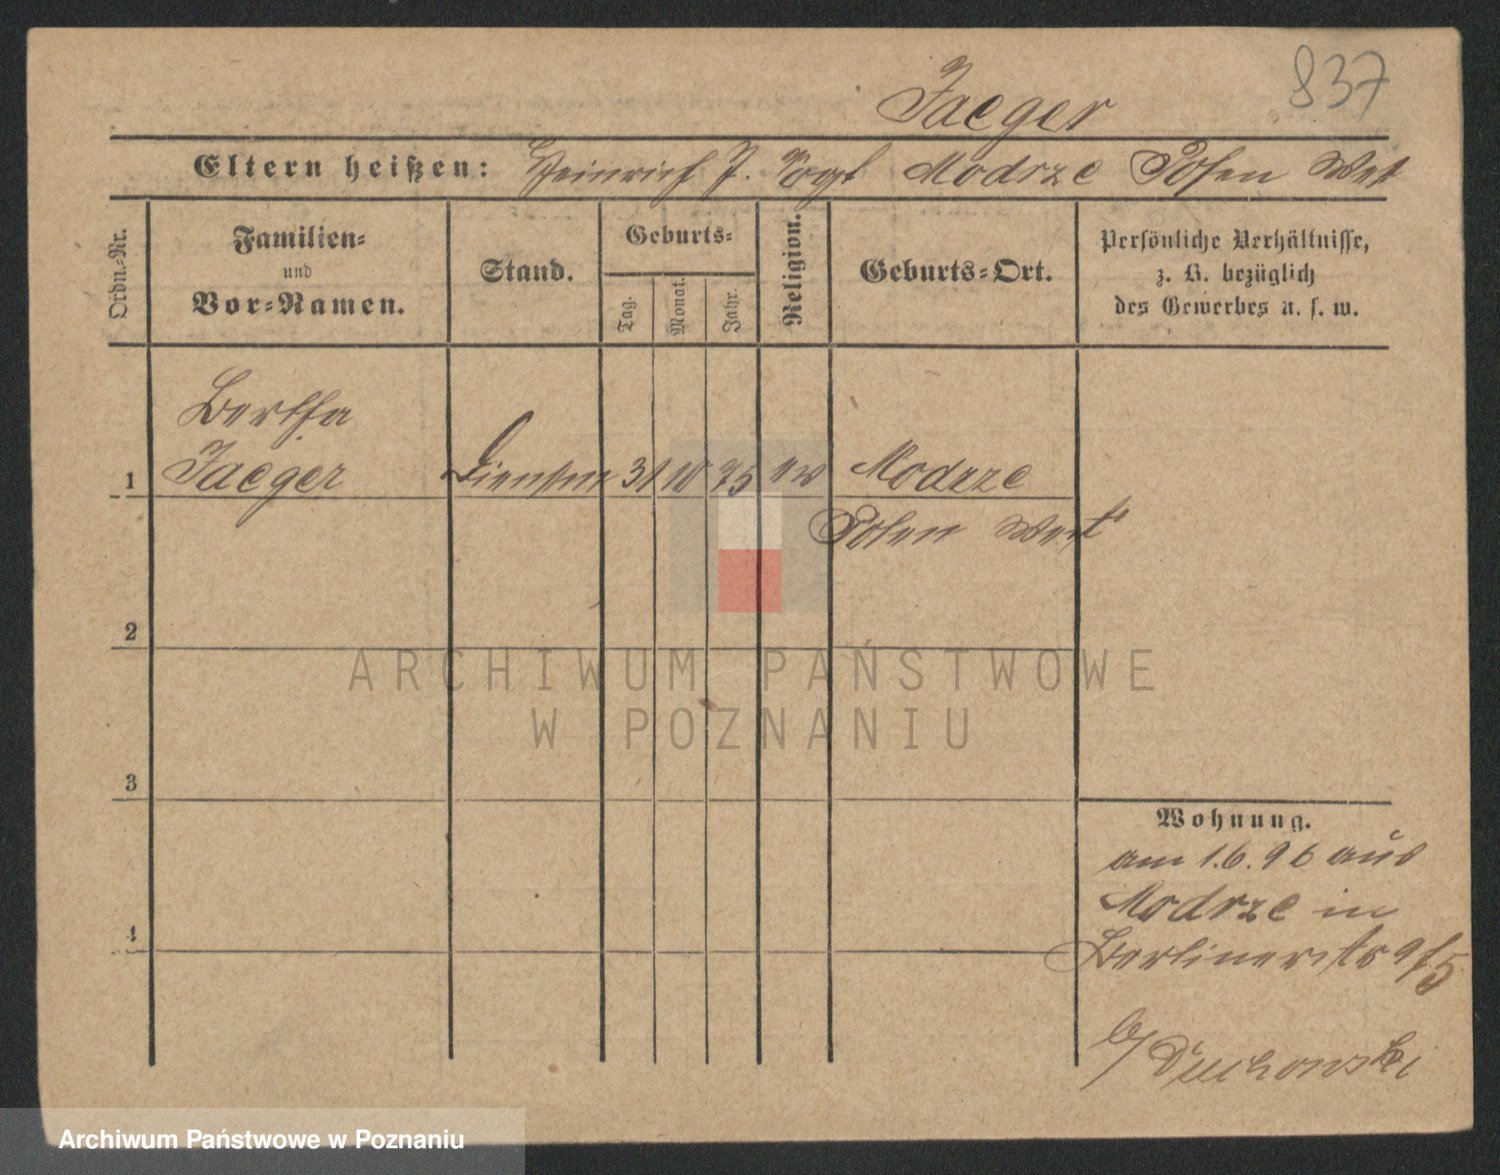 837
Jaeger
Eltern heißen: Heinrich J. Vogt Modrze Posen West
Ordn.-Nr.
Familien-
und
Vor-Namen.
Stand.
Geburts-
Tag.
Monat.
Jahr.
Religion.
Geburts-Ort.
Persönliche Verhältnisse,
z. B. bezüglich
des Gewerbes u. s. w.
Bertha
1 Jaeger 31 10 75 ev Modrze
Posen West
2
3
4
Wohnung.
am 1.6.96 aus
Modrze in
Berlinerstr 9/5
b/
ARCHIWUM PAŃSTWOWE
W POZNANIU
Archiwum Państwowe w Poznaniu